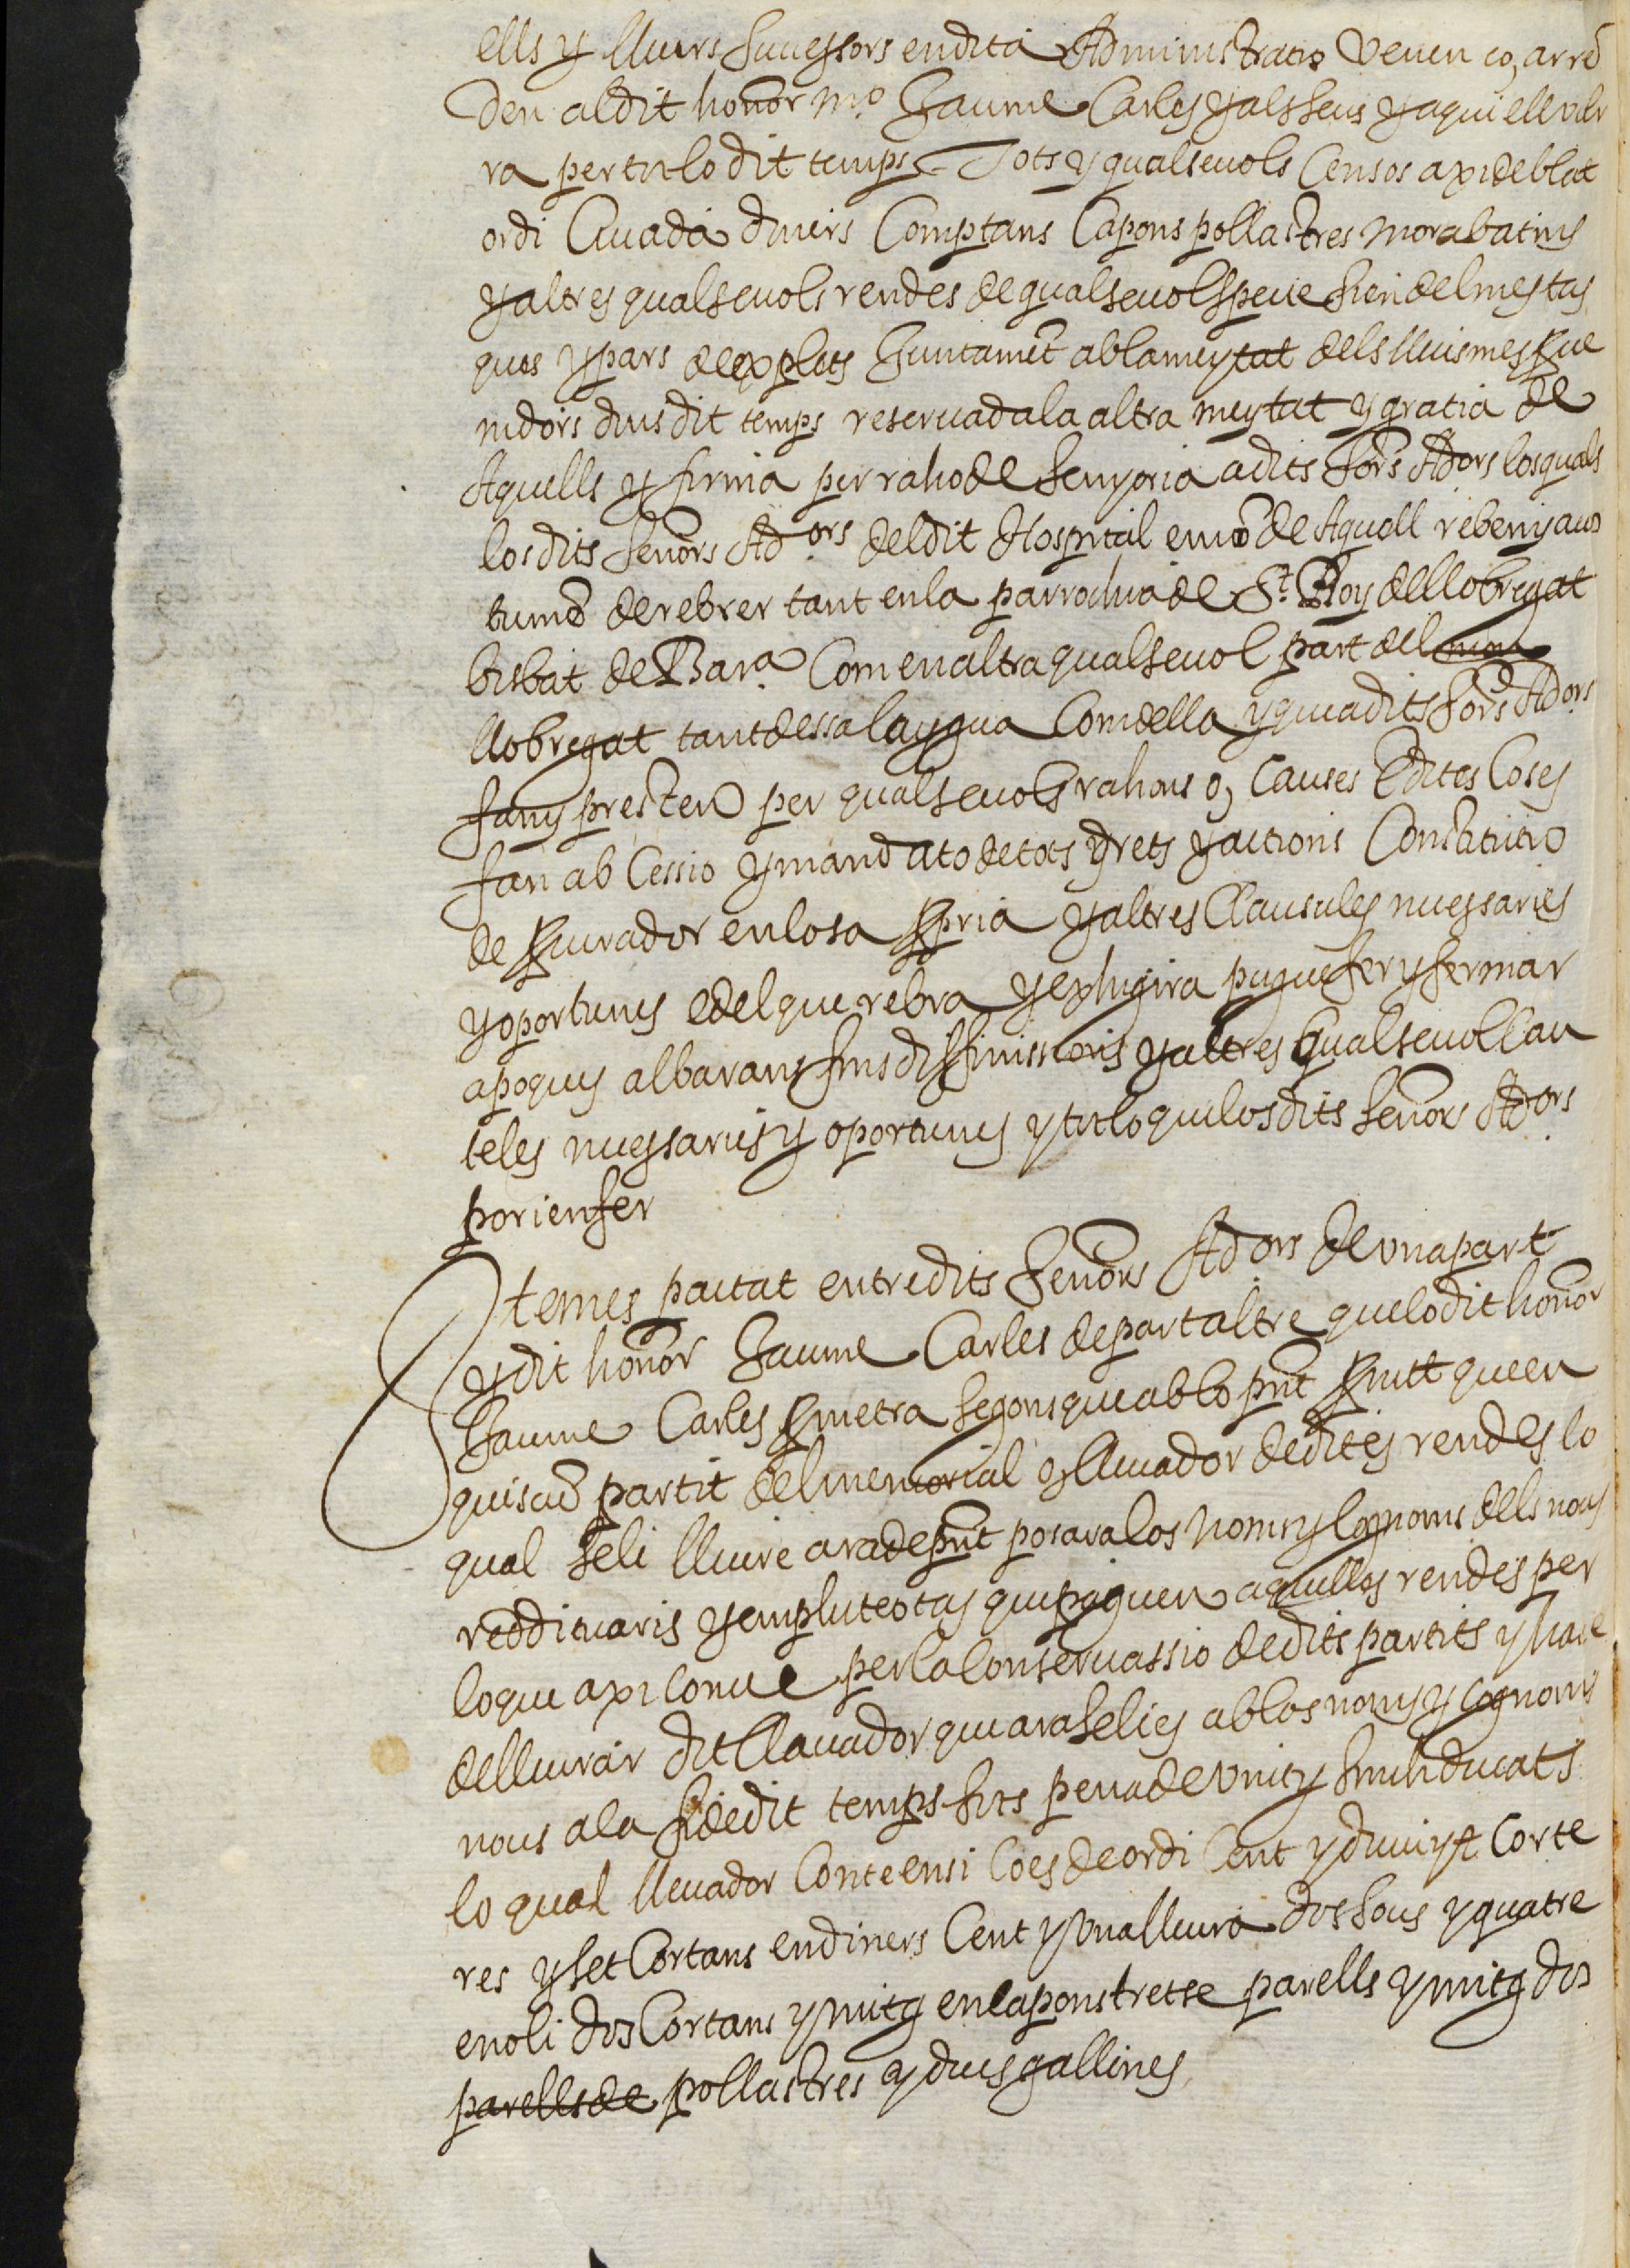 ells y lluurs successors en dita Administratio venen ço, arrē
den al dit honor mº Jaume Carles y als seus y a qui ell vol
ra per tot lo dit temps Tots y qualsevols Censos axi de blat
ordi Civada diners Comptans Capons pollastres morabatins
y altres qualsevols rendes de qualsevol specie sien delmes tas
ques y pars de explets Juntamēt ab la meytat dels lluismes que
nidors dins dit temps reservada la altra meytat y gratia de
Aquells y firma per raho de senyoria a dits Sors Adors los quals
los dits senors Adors del dit Hospital en nō de Aquell reben y acos
tumē de rebrer tant en la parrochia de St. Boy de llobregat
bisbat de Bara Com en altra qualsevol part del
llobregat tant dessa laygua Com della y que a dits Sors Adors
fan y presten per qualsevols rahons o, Causes E dites Coses
fan ab Cessio y mandato de tots drets y actions Constitutio
de procurador en cosa ppria y altres Clausules necessaries
y oportunes e del que rebra y exhigira pugue fer y fermar
apoques albarans fins diffinissions y altres qualsevol cau
teles necessaries y oportunes y tot lo que los dits senors Adors
porien fer
Item es pactat entre dits senors Adors de una part
y dit honor Jaume Carles de part altre que lo dit honor
Jaume Carles pmetra segons que ab lo pnt pmet que en
quiscū partit del memorial y llevador de dites rendes lo
qual se li lliure ara de pnt posara los noms y cognoms dels nous
reddituaris y emphuteotas que paguen aquelles rendes per
lo que axi conve per la conservassio de dits partits y haie
de lliurar dit llavador que ara se li es ab los noms y cognoms
nous a la fi de dit temps sots pena de vint y sinch ducats
lo qual llevador Conte en si Coes de ordi Cent y divuyt Corte
res y set Cortans en diners Cent y una lliura dos sous y quatre
en oli dos Cortans y mitg en capons tretse parells y mitg dos
parells de pollastres y dues gallines